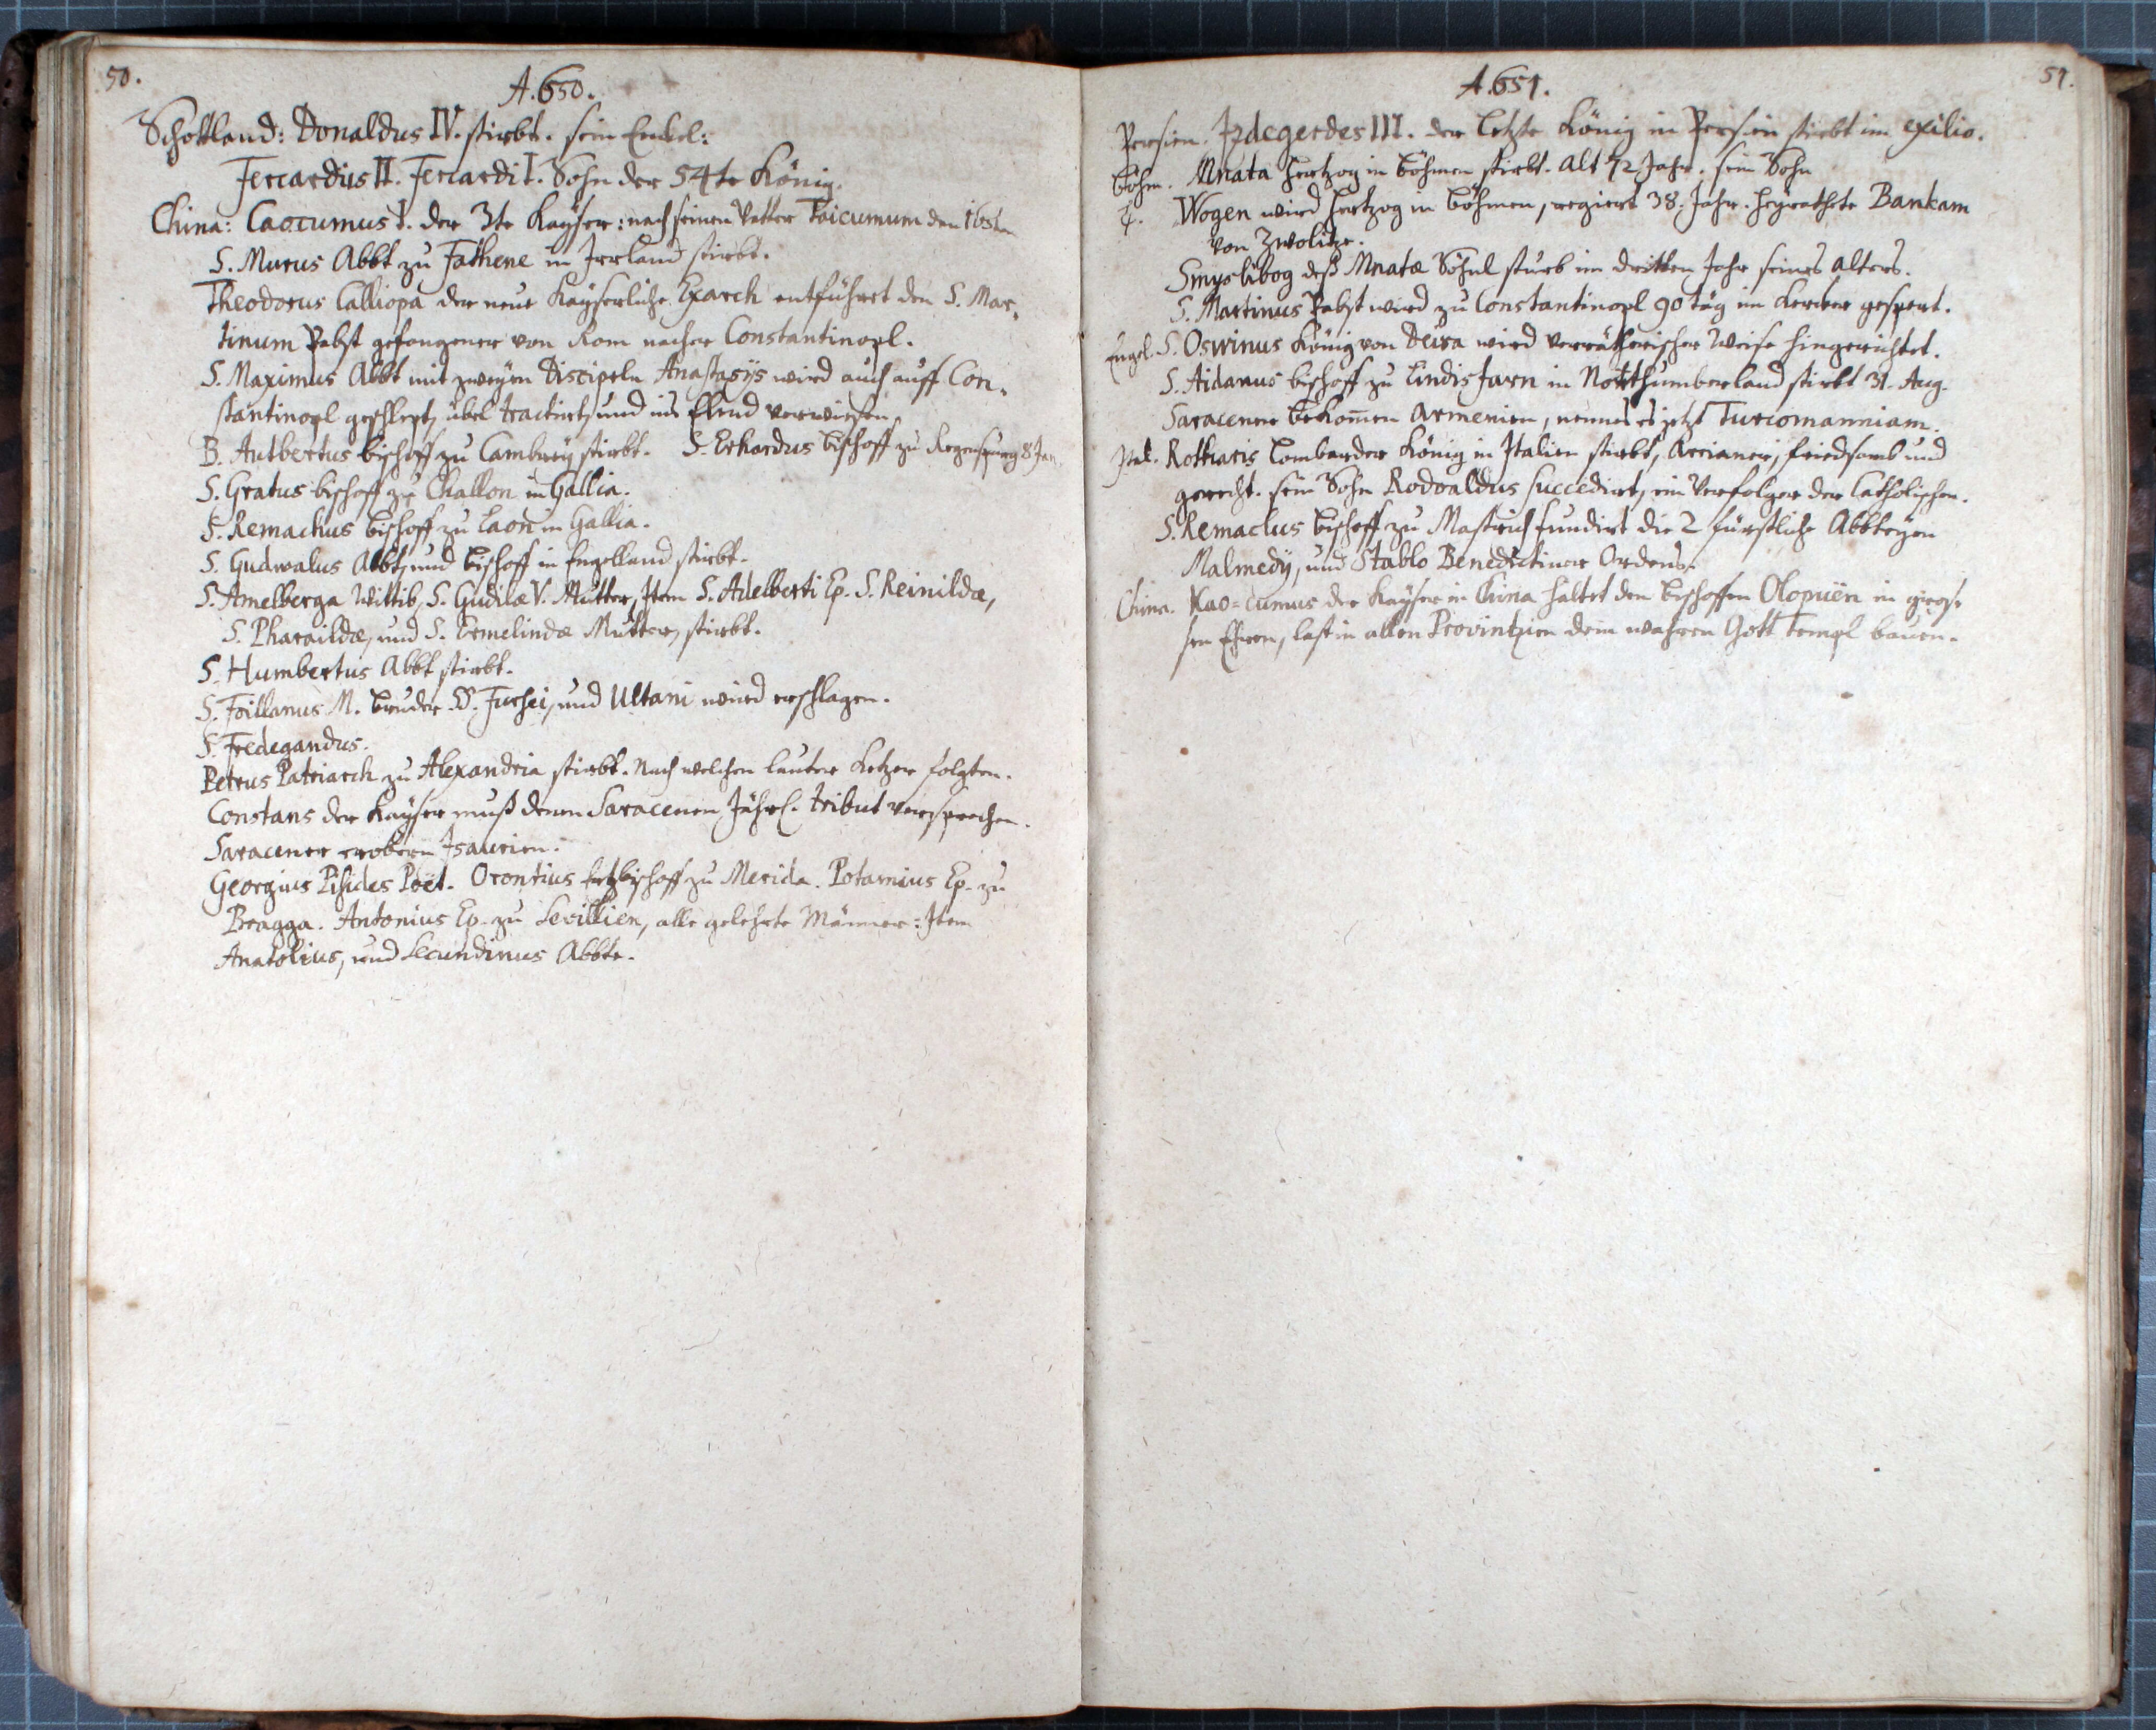 50.
A. 650.
Schottland: Donaldus IV. stirbt. sein Enckel:
Fercardus II. Fercardi I. Sohn der 54te König.
China: Caocumus I. der 3te Kayser: nach seinen Vatter Taicumum den
S. Murus Abbt zu Fathene in Irrland stirbt.
Theodorus Calliopa der neue Kayserliche Exarch entführet den S. Mar-
tinum Pabst gefangener von Rom nacher Constantinopl.
S. Maximus Abbt mit zweyen Discipeln Anastasijs wird auch auff Con-
stantinopl geschlept, übel tractirt, und ins Elend verwiesen.
B. Autbertus bischoff zu Cambrey stirbt. S. Erhardus bischoff zu Regenspurg 8 Jan.
S. Gratus bischoff zu Challon in Gallia.
S. Remachus bischoff zu Laon in Gallia.
S. Gudwalus Abbt, und bischoff in Engelland stirbt.
S. Amelberga Wittib, S. Gudilæ V. Mutter, Item S. Adelberti Ep. S. Reinildæ,
S. Pharaildæ, und S. Ermelindæ Mutter, stirbt.
S. Humbertus Abbt stirbt.
S. Foillanus M. bruder SS. Fursei, und Ultani wird erschlagen.
S. Fredegandus.
Petrus Patriarch zu Alexandria stirbt. Nach welchen lauter Ketzer folgten.
Constans der Kayser muß denen Saracenen Jährl. tribut versprechen.
Saracener erobern Isaurien.
Georgius Pisides Poët. Orontius Ertzbischoff zu Merida. Potamius Ep. zu
Bragga. Antonius Ep. zu Sevillien, alle gelehrte Männer: Item
Anatolius, und Secundinus Abbte.
51.
A. 651.
Persien. Izdegerdes III. der letzte König in Persien stirbt im exilio.
Böhm. Mnata Hertzog in Böhmen stirbt. Alt 72 Jahr. sein Sohn
Wogen wird Hertzog in Böhmen, regiert 38. Jahr. heyrathete Bankam
von Zwolitze.
Smyslibog deß Mnatæ Söhnl sturb im dritten Jahr seines alters.
S. Martinus Pabst wird zu Constantinopl 90 täg im Kercker gespert.
Engel. S. Oswinus König von Deira wird verrätherischer Weise hingerichtet.
S. Aidanus bischoff zu Lindisfarn in Northumberland stirbt 31. Aug.
Saracener bekom̃en Armenien, nennen es jetzt Turcomanniam.
Ital. Rotharis Lombarder König in Italien stirbt, Arrianer, friedsamb und
gerecht. sein Sohn Rodoaldus succedirt, ein Verfolger der Catholischen.
S. Remaclus bischoff zu Mastrich fundirt die 2 fürstliche Abbteyen
Malmedÿ, und Stablo Benedictiner Ordens.
China. Kao-cumus der Kayser in China haltet den bischoffen Olopuën in gros-
sen Ehren, last in allen Provintzien dem wahren Gott Templ bauen.